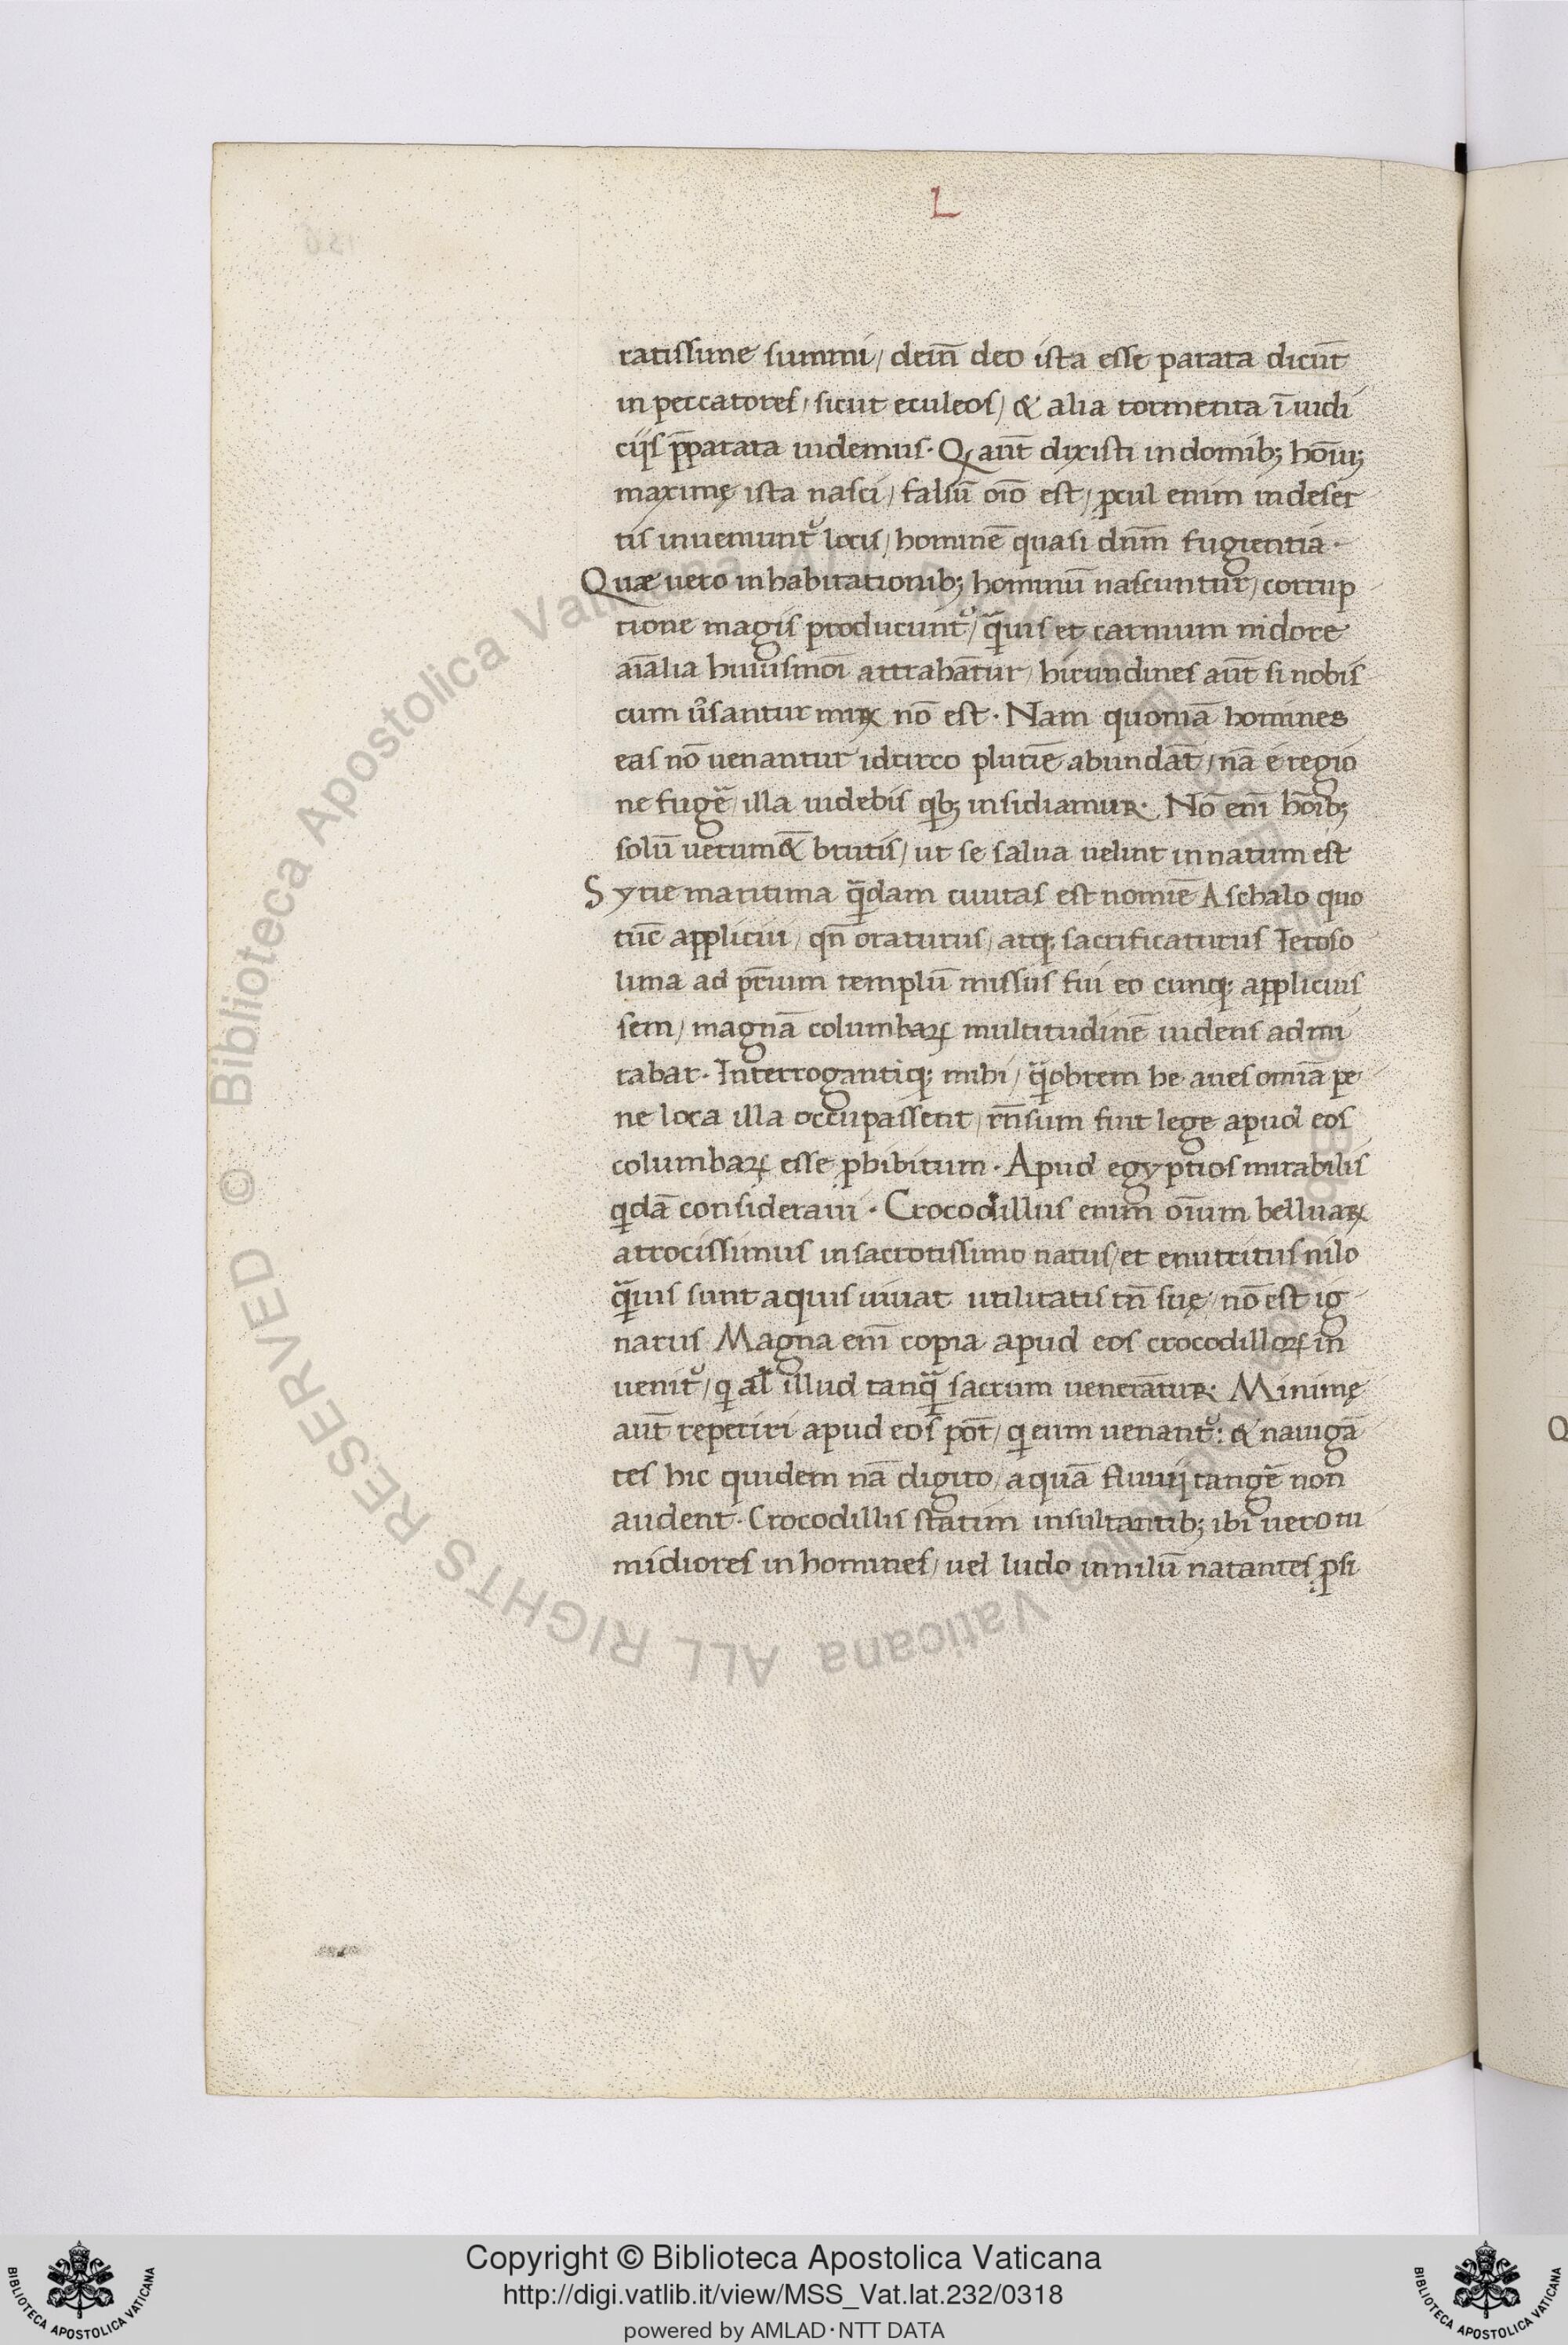 L
ratissime summi, dein̄ deo ista esse parata dicūt
in peccatores, sicut eculeos, & alia tormenta ī iudi
cijs p̄parata uidemus. Q aūt dixisti in domib; hōiu;
maximę ista nasci, falsū oīo est, ꝓcul enim in deser
tis inueniunt᷑ locis, hominē quasi dn̄m fugientia.
Quæ uero in habitationib; hominū nascuntur, corrup
tione magis producunt᷑, q̄uis et carnium nidore
aīalia huiusmōi attrahāntur, hirundines aūt si nobis
cum ūsantur miꝝ nō est. Nam quoniā homines
eas nō uenantur idcirco plurīe abundāt, nā e regio
ne fugē illa uidebis qb; insidiamur. Nō enī hōib;
solū uerum& brutis, ut se salua uelint innatum est
Syrie maritima q̄dam ciuitas est nomīe Aschalo quo
tūc applicui, qn̄ oraturus, atq; sacrificaturus Ieroso
lima ad pr̄ium templū missus fui eo cunq; applicuis
sem, magnā columbaꝝ multitudinē uidens admi
rabar. Interrogantiq; mihi, q̄obrem he aues omīa pe
ne loca illa occupassent, rn̄sum fuit lege apud eos
columbaꝝ esse ꝓhibitum. Apud egyptios mirabilis
qdā consideraui. Crocodillus enim oīum belluaꝝ
atrocissimus in sacrotissimo natus, et enutritus nilo
q̄uis sunt aquis uiuat utilitatis tn̄ suę, nō est ig
narus Magna enī copia apud eos crocodilloꝝ in
uenit᷑, q al̄ illud tanq̄ sacrum uenerāntur. Minimę
aūt reperiri apud eos pōt, q eum uenant᷑: & nauigā
tes hic quidem nā digito, aquā fluuij tangē non
audent. Crocodillis statim insultantib; ibi uero tu
midiores in homines, uel ludo in nilū natantes ꝓsi
Copyright © Biblioteca Apostolica Vaticana
http://digi.vatlib.it/view/MSS_Vat.lat.232/0318
powered by AMLAD·NTT DATA
BIBLIOTECA APOSTOLICA VATICANA
BIBLIOTECA APOSTOLICA VATICANA